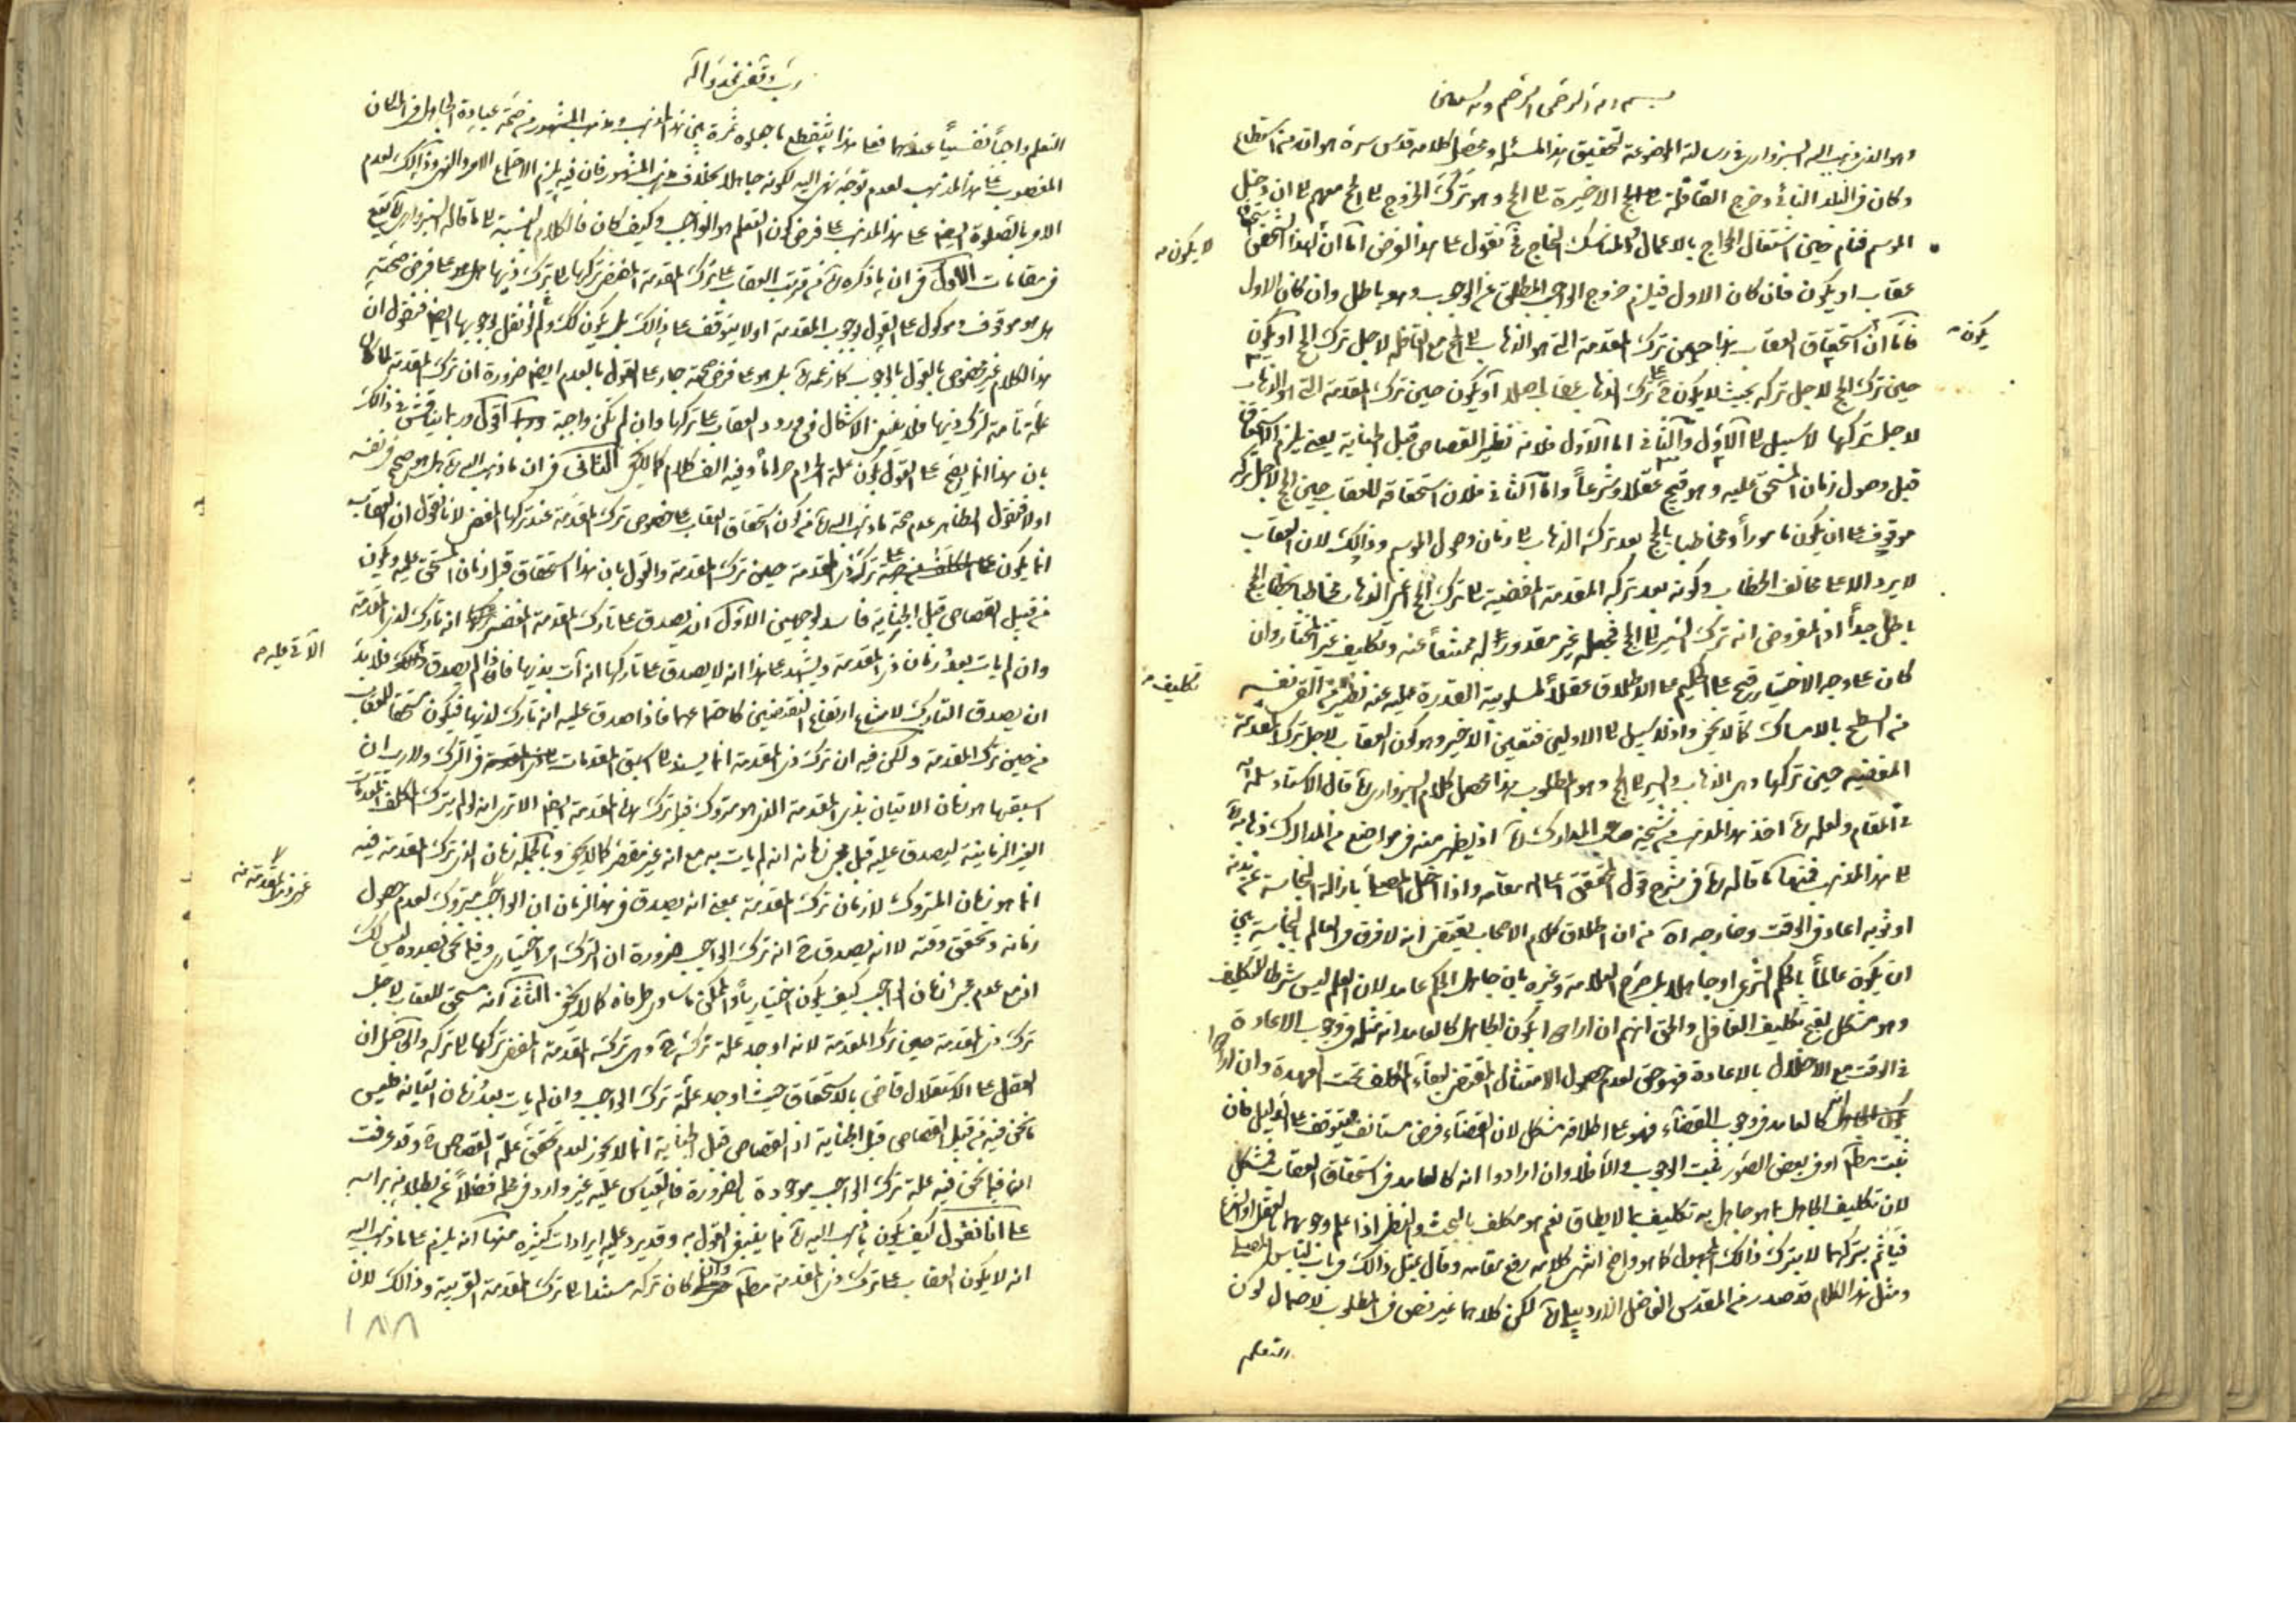 بسم الله الرحمن الرحيم وبه نستعين
وهو الذى ذهب اليه السبزوارى فى رسالته الموضوعة لتحقيق هذا المسئلة ومحصل كلامه قدس سره هو ان من استطاع
وكان فى البلد النائى وخرج القافلة الاخيرة الى الحج وهو ترك الخروج الى الحج معهم الى ان دخل
الموسم فنام حين اشتغال الحاج بالاعمال والمناسك نقول على هذا الفرض اما ان لهذا الشخص
لا يكون
عقاب او يكون فان كان الاول فيلزم خروج الواجب المطلق عن الوجوب وهو باطل وان كان الاول
يكون
فاما ان استحقاق العقاب حين ترك المقدمة التى هو الذهاب الى الحج مع القافلة لاجل ترك الحج او يكون
حين ترك الحج لاجل تركه بحيث لا يكون فى ترك الذهاب عقاب اصلا او يكون حين ترك المقدمة التى هو الذهاب
لاجل تركها لا سبيل الى الاول والثانى اما الاول فلانه نظير القصاص قبل الجناية يعنى يلزم الاستحقاق
قبل وصول زمان المستحق عليه وهو قبيح عقلا وشرعاً واما الثانى فلان استحقاقه للعقاب حين الحج لاجل تركه
موقوف على ان يكون مامورا ومخاطبا بالحج بعد تركه الذهاب الى زمان وصول الموسم وذالك لان العقاب
لا يرد الا على مخالف الخطاب وكونه بعد تركه المقدمة المفضية الى ترك الحج اعنى الذهاب مخاطبا بخطاب الحج
باطل جداً اذ المفروض انه ترك السير الى الحج فجعله غير مقدور له ممتنعاً عنه وتكليف غير المختار وان
تكليف
كان على وجه الاختيار قبيح على الحكيم على الاطلاق عقلاً لمسلوبية القدرة عليه عنه نظير من القى نفسه
من السطح بالامساك كما لا يخفى واذ لا سبيل الى الاولين فتعين الاخير وهو كون العقاب لاجل ترك المقدمة
المفضية حين تركها وهى الذهاب والسير الى الحج وهو المطلوب هذا محصل كلام السبزوارى قال الاستاد سلمه الله
فى المقام ولعله اخذ هذا المذهب من شيخه صاحب المدارك اذ يظهر منه فى مواضع من المدارك ذهابه
الى هذا المذهب فمنها ما قاله فى شرح قول المحقق اعلى الله مقامه واذا اخل المصلى بازالة النجاسة عن بدنه
او ثوبه اعاد فى الوقت وخارجه من ان اطلاق كلام الاصحاب يقتضى انه لا فرق فى العالم بالنجاسة بين
ان يكون عالماً بالحكم الشرعى او جاهلا بل صرح العلامة وغيره بان جاهل الحكم عامد لان العلم ليس شرطا للتكليف
وهو مشكل لقبح تكليف الغافل والحق انهم ان ارادوا بكون الجاهل كالعامد انه مثله فى وجوب الاعادة
فى الوقت مع الاخلال بالاعادة فهو حق لعدم حصول الامتثال المقتضى لبقاء المكلف تحت العهدة وان ارادوا
انه كالعامد فى وجوب القضاء فهو على اطلاقه مشكل لان القضاء فرض مستانف فيتوقف على الدليل فان
ثبت مطلقا او فى بعض الصور ثبت الوجوب والا فلا وان ارادوا انه كالعامد فى استحقاق العقاب فمشكل
لان تكليف الجاهل بما هو جاهل به تكليف بما لا يطاق نعم هو مكلف بالبحث والنظر اذا علم وجوبهما بالعقل او الشرع
فياثم بتركهما لا بترك ذالك المجهول كما هو واضح انتهى كلامه رفع مقامه وقال بمثل ذالك فى باب لباس المصلى
ومثل هذا الكلام قد صدر من المقدس الفاضل الاردبيلى لكن كلاهما غير نص فى المطلوب لاحتمال كون
التعلم
رب وفقنى بمحمد وآله
التعلم واجباً نفسياً عندهما فعلى هذا ينقطع ثمرة بين هذا المذهب ومذهب المشهور من صحة عبادة الجاهل فى المكان
المغصوب على هذا المذهب لعدم توجه نهى اليه لكونه جاهلا بخلاف مذهب المشهور فان فيه يلزم اجتماع الامر والنهى وذالك لعدم
الامر بالصلوة ايضا على هذا المذهب على فرض كون التعلم هو الواجب وكيف كان فالكلام بالنسبة الى ما قاله السبزوارى يقع
فى مقامات الاول فى ان ما ذكره من ترتب العقاب على ترك المقدمة المفضى تركها الى ترك ذيها على فرض صحته
هل هو موقوف وموكول على القول بوجوب المقدمة او لا يتوقف على ذالك بل يكون كك ولو لم نقل بوجوبها ايضا فنقول ان
هذا الكلام غير مخصوص بالقول بالوجوب كما زعمه بل هو على فرض صحته جار على القول بالعدم ايضا ضرورة ان ترك المقدمة لما كان
علة تامة لترك ذيها فلا ينبغى الاشكال فى ورود العقاب على تركها وان لم تكن واجبة اقول وربما يناقش فى ذالك
بان هذا انما يصح على القول بكون علة الحرام حراماً وفيه الف كلام كما لا يخفى الثانى فى ان ما ذهب اليه هل هو صحيح فى نفسه
اولا فنقول الظاهر عدم صحة ما ذهب اليه من كون استحقاق العقاب على خصوص ترك المقدمة عند تركها المفضى لانا نقول ان العقاب
انما يكون على ترك ذى المقدمة حين ترك المقدمة والقول بان هذا استحقاق قبل زمان المستحق عليه ويكون
من قبيل القصاص قبل الجناية فاسد لوجهين الاول انه يصدق على تارك المقدمة المفضى انه تارك لذى المقدمة
الآتى عليه
وان لم يات بعد زمان ذى المقدمة ويشهد على هذا انه لا يصدق على تاركها انه آت بذيها فاذا لم يصدق ذالك فلا بد
ان يصدق التارك لامتناع ارتفاع النقيضين كاجتماعهما فاذا صدق عليه انه تارك لذيها فيكون مستحقا للعقاب
من حين ترك المقدمة ولكن فيه ان ترك ذى المقدمة انما يسند الى اسبق المقدمات فى الترك ولا ريب ان
اسبقها هو زمان الاتيان بذى المقدمة الذى هو متروك قبل ترك هذه المقدمة ايضا الا ترى انه لو لم يترك المكلف المقدمات
الغير الزمانية ليصدق عليه قبل مجئ زمانه انه لم يات به مع انه غير مقصر كما لا يخفى وبالجملة زمان الذى ترك المقدمة فيه
غير ذى المقدمة منه
انما هو زمان المتروك لا زمان ترك المقدمة بمعنى انه يصدق فى هذا الزمان ان الواجب متروك لعدم حصول
زمانه وتحقق وقته لا انه يصدق انه ترك الواجب ضرورة ان الترك امر اختيارى وفيما نحن بصدده ليس كك
اذ مع عدم مجئ زمان الواجب كيف يكون اختيارياً والممكن ما تساوى طرفاه كما لا يخفى الثانى انه مستحق للعقاب لاجل
ترك ذى المقدمة حين ترك المقدمة لانه اوجد علة تركه وهى تركه المقدمة المفضى تركها الى تركه والحاصل ان
العقل على الاستقلال قاض بالاستحقاق حيث اوجد علة ترك الواجب وان لم يات بعد زمان اتيانه فليس
ما نحن فيه من قبيل القصاص قبل الجناية اذ القصاص قبل الجناية انما لا يجوز لعدم تحقق علة القصاص وقد عرفت
ان فيما نحن فيه علة ترك الواجب موجودة بالضرورة فالقياس عليه غير وارد فى محله فضلاً عن بطلانه براسه
على انا نقول كيف يكون ما ذهب اليه مما ينبغى القول به وقد يرد عليه ايرادات كثيرة منها انه يلزم على ما ذهب اليه
انه لا يكون العقاب على ترك ذى المقدمة مطلقا وان كان تركه مستندا الى ترك المقدمة القريبة وذالك لان
١٨٨